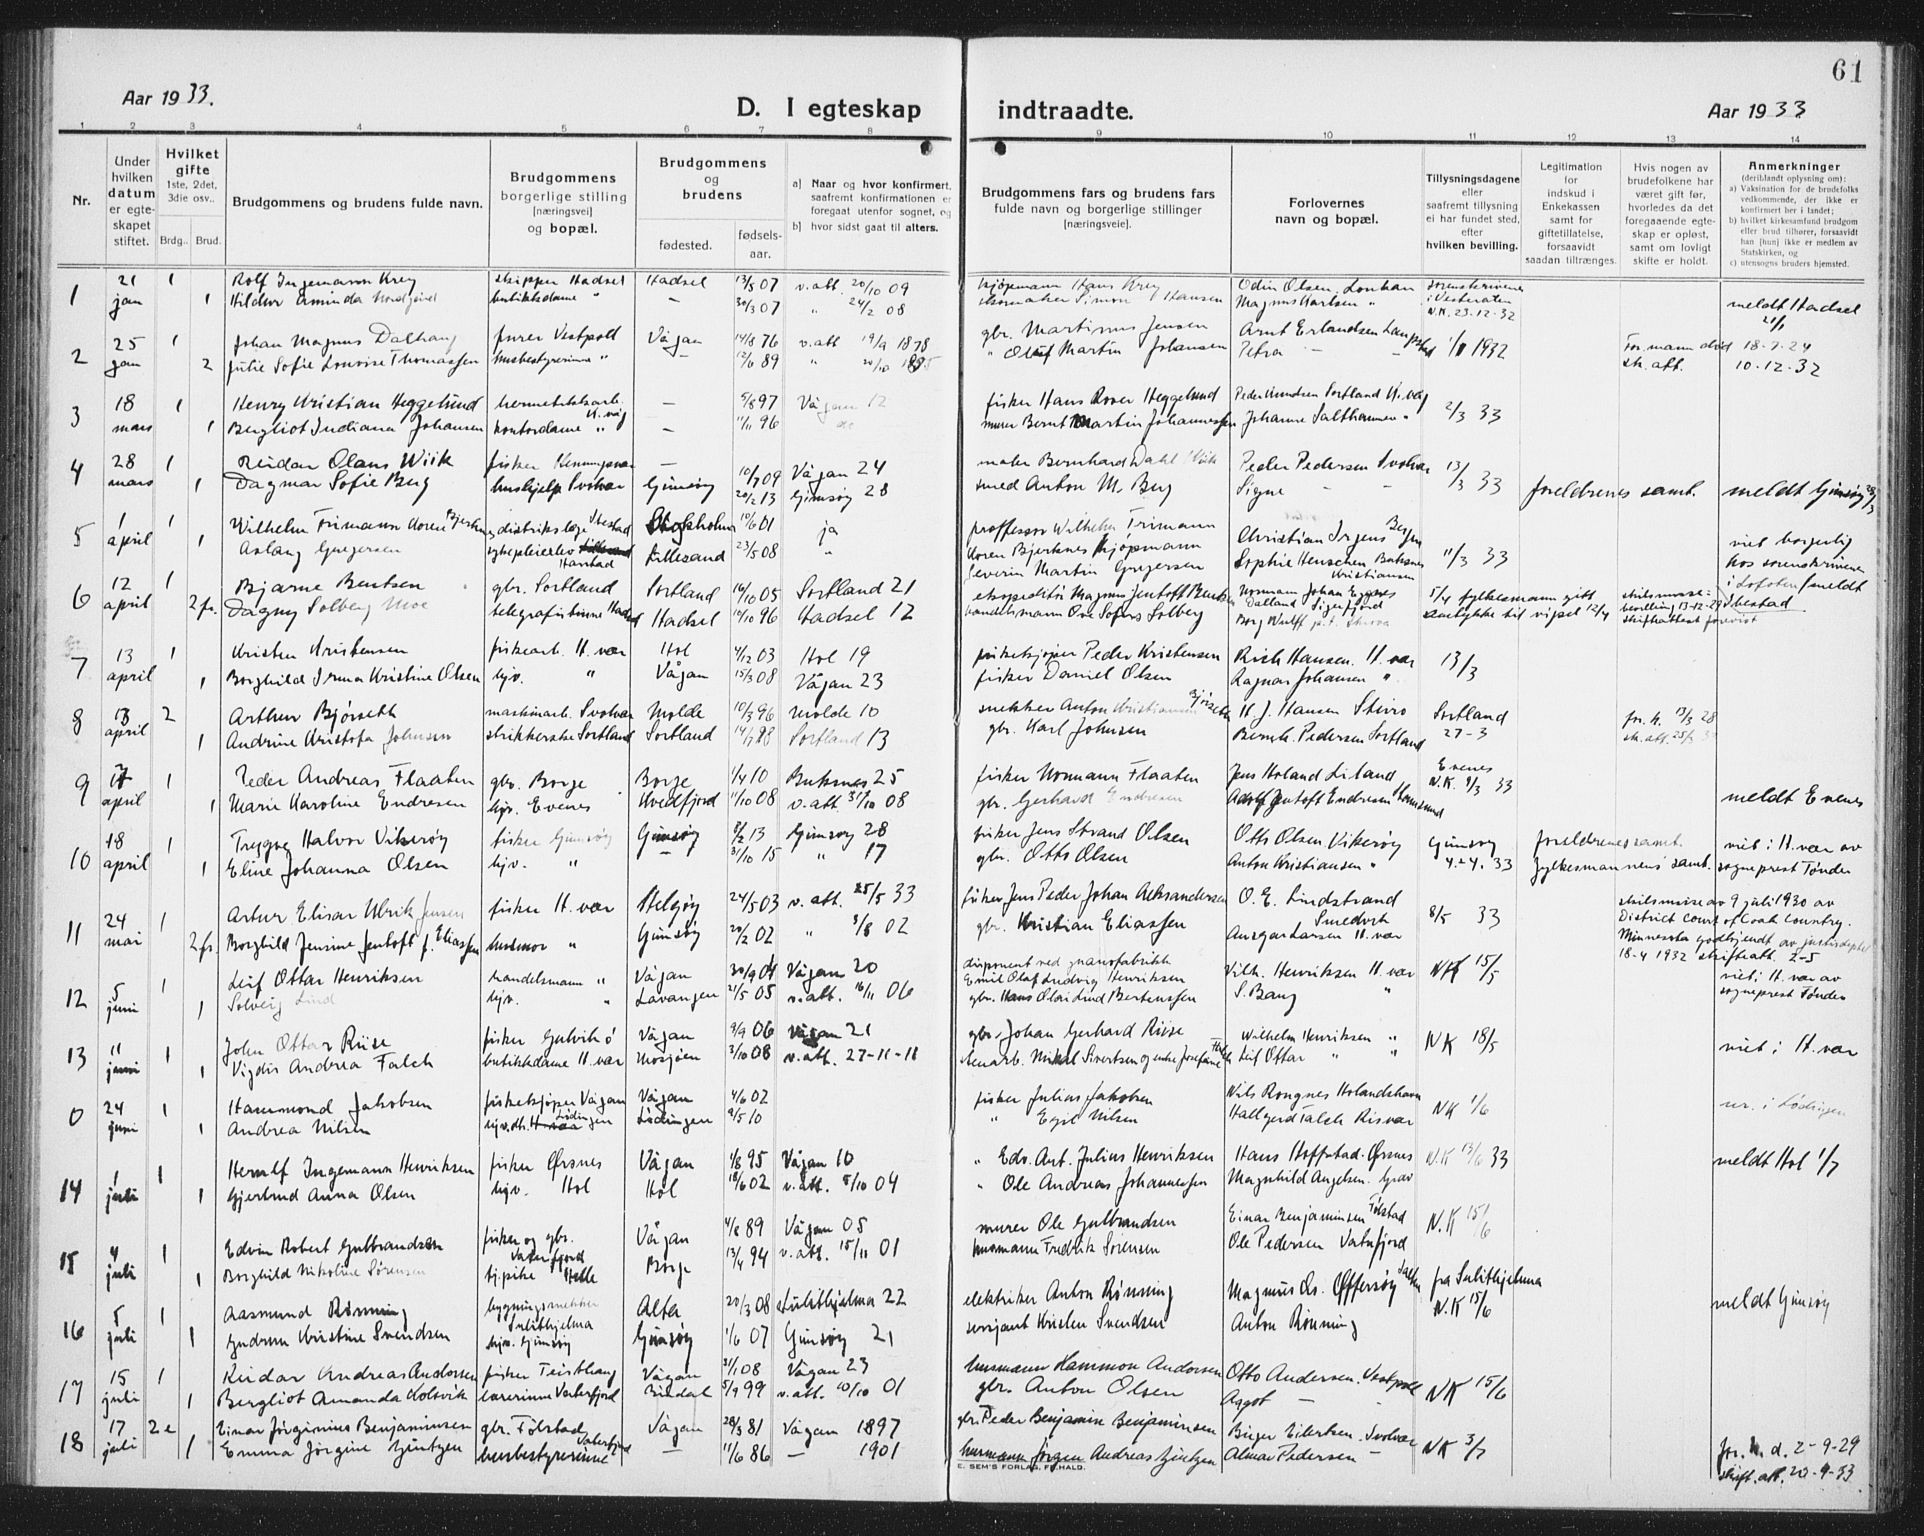 61
Aar 1933.
D. I egteskap indtraadte.
Aar 1933
1 2 3 4 5 6 7 8 9 10 11 12 13 14
Nr.
Under hvilken datum er egteskapet stiftet.
Hvilket gifte 1ste, 2det, 3die osv..
Brdg.. Brud.
Brudgommens og brudens fulde navn.
Brudgommens borgerlige stilling [næringsvei] og bopæl.
Brudgommens og brudens
fødested. fødsels-aar.
a) Naar og hvor konfirmert, saafremt konfirmationen er foregaat utenfor sognet, og
b) hvor sidst gaat til alters.
Brudgommens fars og brudens fars fulde navn og borgerlige stillinger [næringsveie].
Forlovernes navn og bopæl.
Tillysningsdagene eller saafremt tillysning ei har fundet sted, efter hvilken bevilling.
Legitimation for indskud i Enkekassen samt for giftetillatelse, forsaavidt saadan tiltrænges.
Hvis nogen av brudefolkene har været gift før, hvorledes da det foregaaende egteskap er opløst, samt om lovligt skifte er holdt.
Anmerkninger (deriblandt oplysning om):
a) Vaksination for de brudefolks vedkommende, der ikke er konfirmert her i landet;
b) hvilket kirkesamfund brudgom eller brud tilhører, forsaavidt han [hun] ikke er medlem av Statskirken, og
c) utensogns bruders hjemsted.
1 21 jan 1 Rolf Ingemann Krey skipper Hadsel Hadsel 13/5 07 v. att. 20/10 09 kjøpmann Hans Krey Odin Olsen Lonkan sorenskriveren i Vesteraalen N.K. 23-12-32
1 Hildur Erminda butikkdame " — 30/3 07 " 24/2 08 skomaker Simon Hansen Magnus Karlsen " meldt Hadsel 21/1
2 25 jan 1 Johan Magnus Dalhaug furer Vestpoll Vågan 14/8 76 v. att 19/9 1878 gbr. Martinus Jensen Arnt Erlandsen 1932
2 Julie Sofie Lovise Thomassen husbestyrerinne " — 12/6 89 " 20/10 " Oluf Martin Johansen Petra — — For. mann død 18-7-24 sk. att. 10-12-32
3 18 mars 1 Henry Kristian Heggelund hermetikkarb. — 5/8 97 Vågan 12 fisker Hans Rover Heggelund Peder Knudsen Sortland K. våg 2/3 33
1 Bergliot Indiana Johansen kontordame " — 11/11 96 do murer Bernt Martin Johannessen Johanne Salthammer "
4 28 mars 1 Reidar Olaus Wiik fisker — 10/7 09 Vågan 24 maler Bernhard Dahl Wiik Peder Pedersen Svolvær 13/3 33
1 Dagmar Sofie Berg hushjelp Svolvær Gimsøy 20/2 13 Gimsøy 28 smed Anton M. Berg Signe — — foreldrenes samt. meldt Gimsøy 28/3
5 1 april 1 Wilhelm Frimann Koren Bjerknes distriktslæge Ibestad Stockholm 10/6 01 ja proffessor Wilhelm Frimann Koren Bjerknes Christian Irgens Bergen 11/3 33
1 Aslaug Gregersen sykepleierske Harstad Lillesand 23/5 08 " kjøpmann Severin Martin Gregersen Sophie Henschen Buksnes Kristiansen viet borgerlig hos sorenskriveren i Lofoten / meldt Ibestad
6 12 april 1 Bjarne Bentsen gbr. Sortland Sortland 14/10 05 Sortland 21 ekspeditør Magnus Jentoft Bentsen Normann Johan Eggnes 5/4 fylkesmann gitt samtykke til vigsel 12/4
2 fr. Dagny Solberg Moe telegrafistinne Hadsel Hadsel 10/10 96 Hadsel 12 handelsmann Ove Sofus Solberg Borg Wulff p.t. Skrova skilsmisse-bevilling 13-12-29 skifteattest forevist
7 13 april 1 Kristen Kristensen fiskearb. H. vær Hol 4/12 03 Hol 19 fiskekjøper Peder Kristensen Rich Hansen. H. vær 13/3
1 Borghild Irma Kristine Olsen hjv. " Vågan 15/3 08 Vågan 23 fisker Daniel Olsen Ragnar Johansen "
8 13 april 2 Arthur Bjørseth maskinarb. Svolvær Molde 10/3 96 Molde 10 snekker Anton Kristiansen Bjørseth H. J. Hansen Stivro Sortland 27-3 for. h. 13/3 28
1 Andrine Kristofa Johnsen strikkerske Sortland Sortland 14/7 88 Sortland 13 gbr. Karl Johnsen Bernh. Pedersen Sortland sk. att. 25/3
9 17 april 1 Peder Andreas Flaaten gbr. Borge Borge 1/4 10 Buksnes 25 fisker Normann Flaaten Jens Holand Liland Evenes N.K. 9/3 33
1 Marie Karoline Endresen hjv. Evenes Kvedfjord 11/10 08 v. att 31/10 08 gbr. Gerhard Endresen Adolf Jentoft Endresen meldt Evenes
10 18 april 1 Trygve Halvor Vikerøy fisker Gimsøy Gimsøy 8/2 13 Gimsøy 28 fisker Jens Strand Olsen Otto Olsen Vikerøy Gimsøy 4.24. 33 foreldrenes samt. viet i H. vær av
1 Eline Johanna Olsen hjv. " — 31/10 15 " 17 gbr. Otto Olsen Anton Kristiansen " fylkesmannens samt. sogneprest Tønder
11 24 mai 1 Artur Elisar Ulrik Jensen fisker H. vær Helgøy 24/5 03 v. att. 25/5 33 fisker Jens Peder Johan Aleksandersen O. E. Lindstrand Smedvik 8/5 33
2 fr. Borghild Jensine Jentoft f. Eliassen husmor " Gimsøy 20/2 02 " 3/8 02 gbr. Kristian Eliassen Ansgar Larsen H. vær skilsmisse av 9 juli 1930 av District Court of Cook Country. Minnesota godkjendt av justisdeptet 18-4 1932 skifteatt. 2-5
12 5 juni 1 Leif Ottar Henriksen handelsmann " Vågan 30/9 04 Vågan 20 disponent ved guanofabrikk Emil Olaf Ludvig Henriksen Vilh. Henriksen H. vær NK 15/5 viet i H. vær av
1 Solveig Lind hjv. " Lavangen 21/5 05 v. att. 16/11 06 gbr. Hans Olai Lind Bertenssen S. Bang " sogneprest Tønder
13 11 juni 1 John Ottar Riise fisker Gulvik ó Vågan 9/9 06 Vågan 21 gbr. Johan Gerhard Riise Wilhelm Henriksen " NK 18/5
1 Vigdis Andrea Falch butikkdame H. vær Mosjøen 3/10 08 v. att. 27-11-11 Mikal Sivertsen og enke Josefine Falch Leif Ottar " " viet i H. vær
0 24 juni 1 Hammond Jakobsen fiskekjøper Vågan Vågan 4/6 02 fisker Julius Jakobsen Nils Rongnes Holandshavn NK 1/6
1 Andrea Nilsen hjv. dtr. Lødingen Lødingen 9/5 10 " Egil Nilsen Hallgerd Falch Risvær i Lødingen
14 1 juli 1 Herulf Ingemann Henriksen fisker Ørsnes Vågan 1/8 95 Vågan 10 " Edv. Ant. Julius Henriksen Hans Hoffstad. Ørsnes N.K 13/6 33
1 Gjertrud Anna Olsen hjv. Hol Hol 18/6 02 v. att. 8/10 04 " Ole Andreas Johannessen Magnhild Angelsen. Grav meldt Hol 1/7
15 4 juli 1 Edvin Robert Gulbrandsen fisker og gbr. Vaterfjord Vågan 4/8 89 Vågan 05 murer Ole Gulbrandsen Einar Benjaminsen Følstad N.K 15/6
1 Borghild Nikoline Sørensen tj. pike Helle Borge 13/4 94 v. att. 15/11 01 husmann Fredrik Sørensen Ole Pedersen Vatnfjord
16 5 juli 1 Aasmund Rønning bygningssnekker Sulithjelma Alta 20/3 08 Sulithjelma 22 elektriker Anton Rønning Magnus As. Øffersøy fra Sulithjelma N.K 15/6
1 Gudrun Kristine Svendsen hjv. Gimsøy Gimsøy 1/6 07 Gimsøy 21 sersjant Kristen Svendsen Anton Rønning meldt Gimsøy
17 15 juli 1 Reidar Andreas Andorsen fisker Teisthaug Vågan 31/1 08 Vågan 23 husmann Hammon Andorsen Otto Andersen. Vestpoll NK 15/6
1 Bergliot Amanda Kolsvik lærerinne Vaterfjord Bindal 5/9 99 v. att. 10/10 01 gbr. Anton Olsen Aagot —
18 17 juli 2 e Einar Jørginius Benjaminsen gbr. Følstad Vågan 28/3 81 Vågan 1897 gbr. Peder Benjamin Benjaminsen Birger Eilertsen. Svolvær NK 3/7
1 Emma Jørgine Gjintzen husbestyrerinne Vaterfjord — 11/6 86 — 1901 husmann Jørgen Andreas Gjintzen Almar Pedersen — for. h. d. 2-9-29 skift. att. 20-4-33
E. SEM'S FORLAG, FR.HALD.